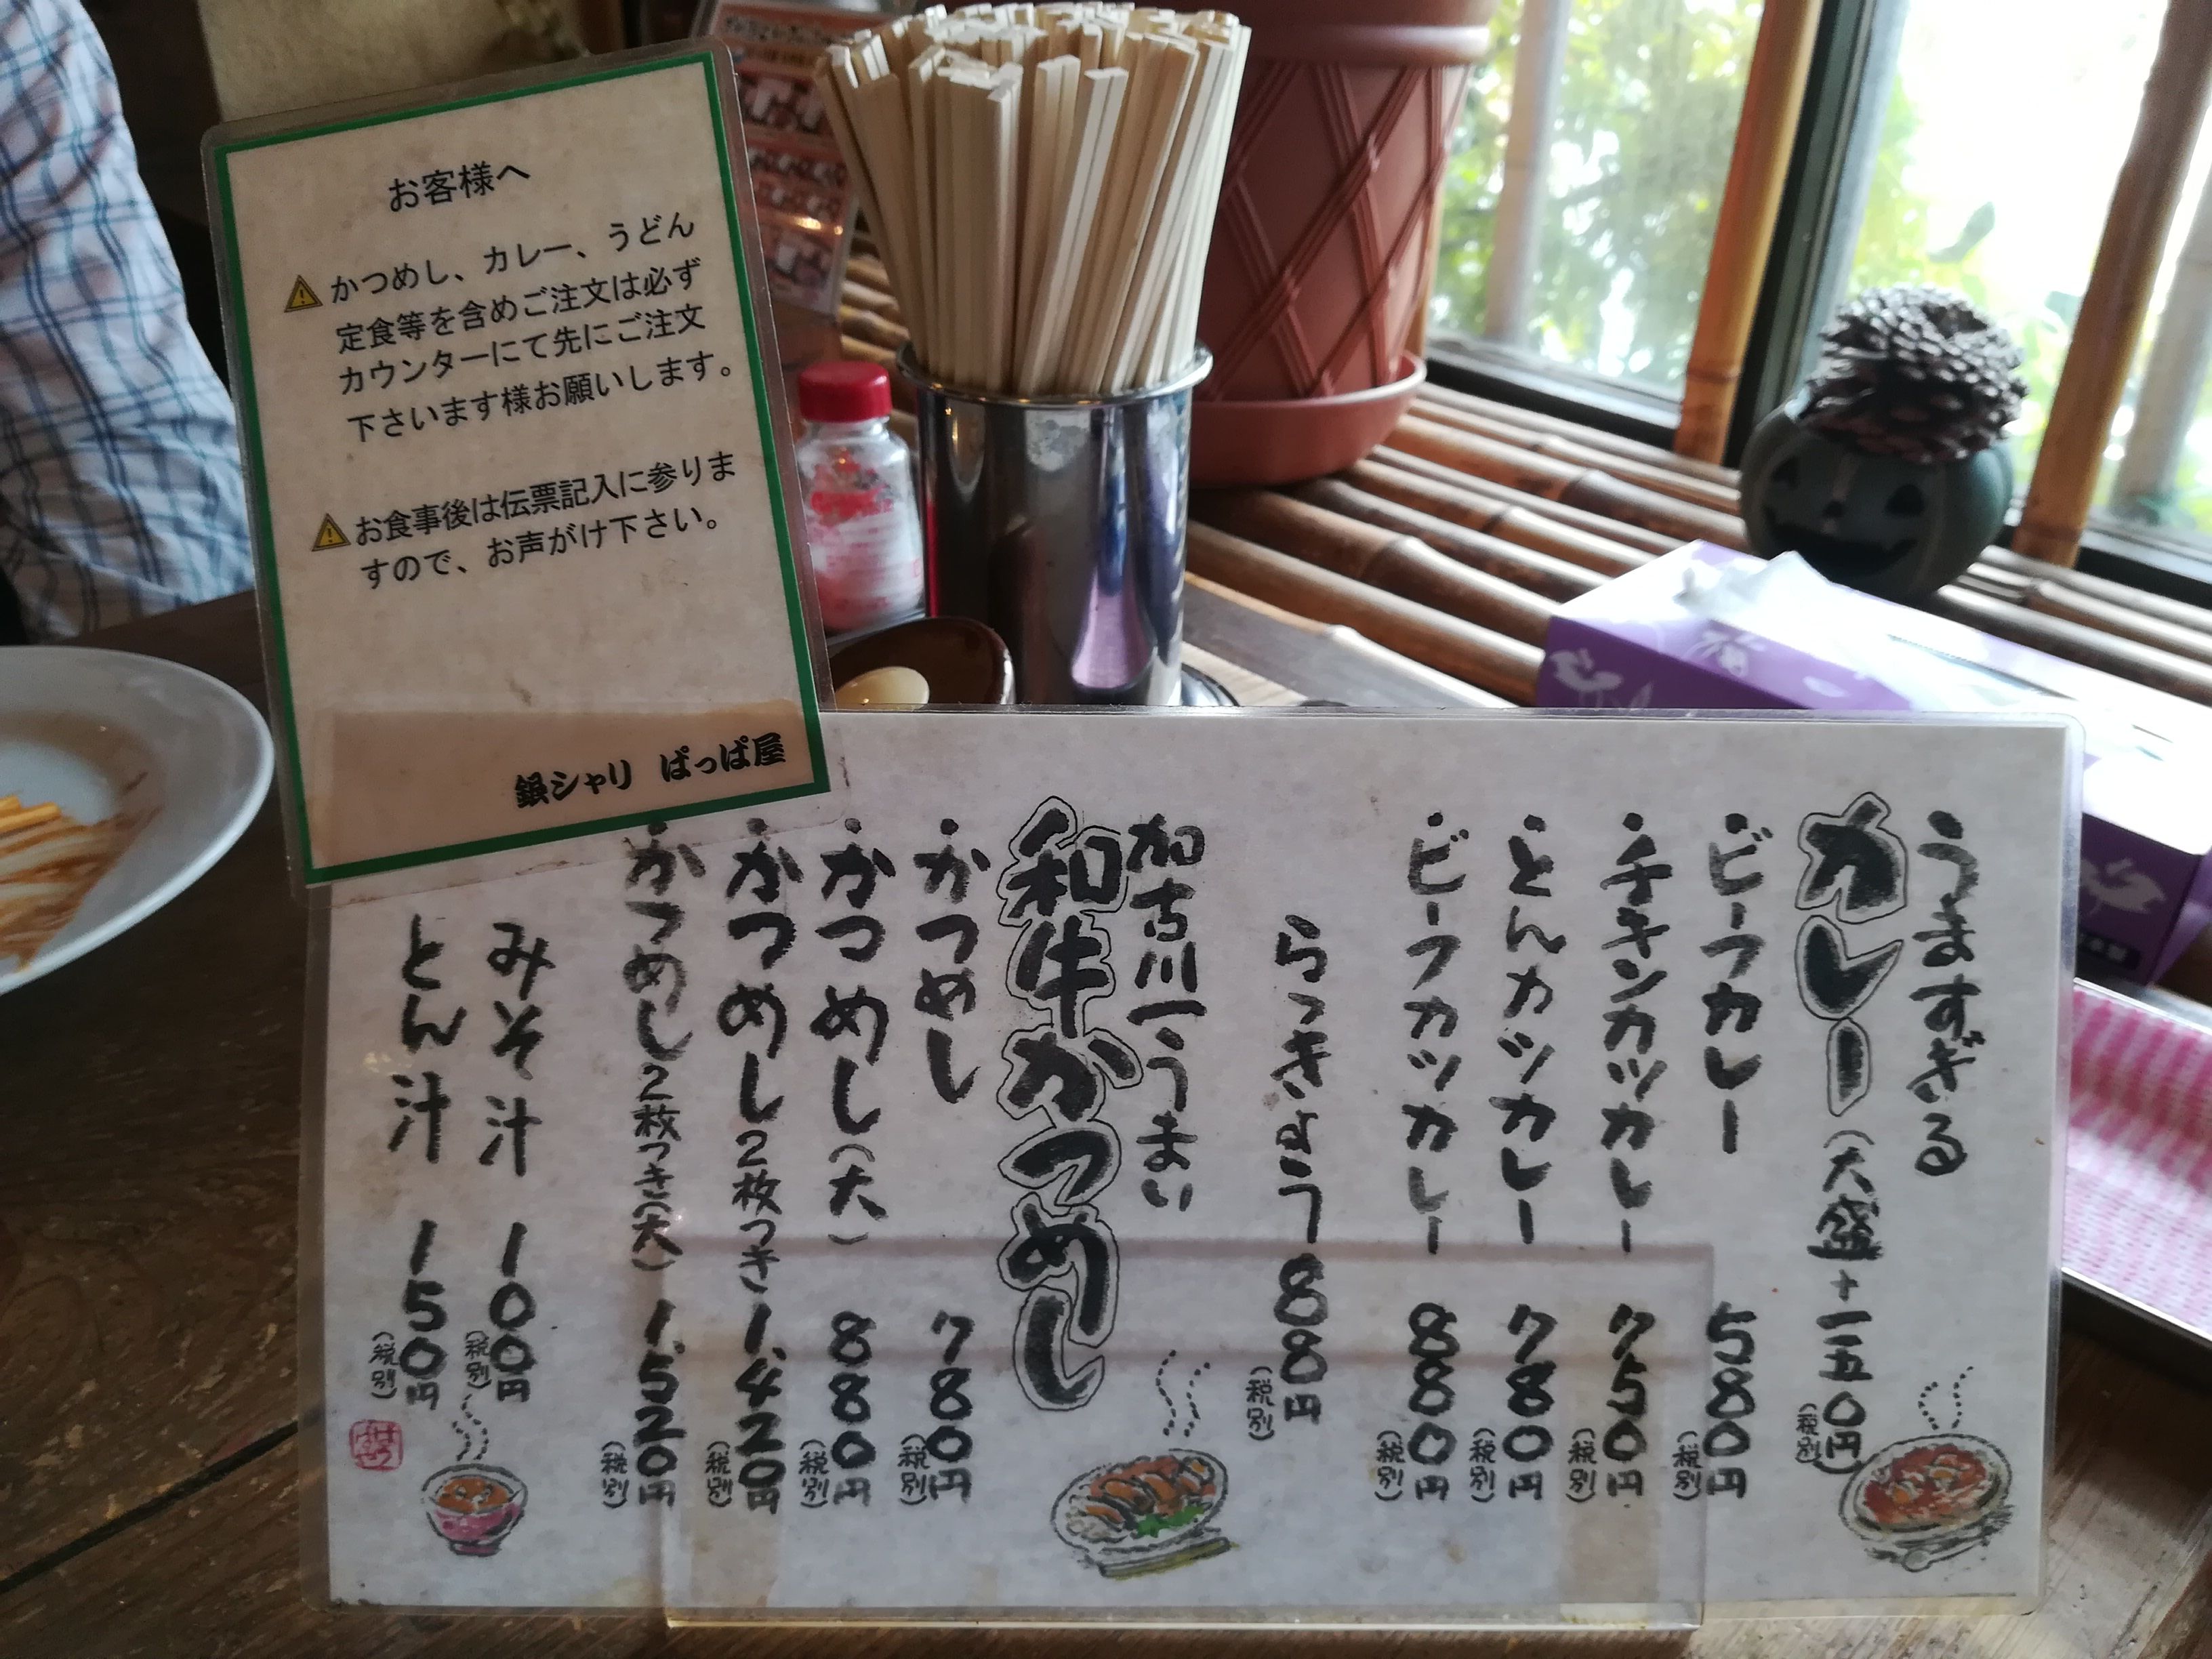 お客様へ
⚠かつめし、カレー、うどん
定食等を含めご注文は必ず
カウンターにて先にご注文
下さいます様お願いします。
⚠お食事後は伝票記入に参りま
すので、お声がけ下さい。
銀シャリ ぱっぱ屋
うますぎる
カレー(大盛+一五〇円(税別))
・ビーフカレー 580円(税別)
・チキンカツカレー 750円(税別)
・とんカツカレー 780円(税別)
・ビーフカツカレー 880円(税別)
らっきょう 88円(税別)
加古川一うまい
和牛かつめし
・かつめし 780円(税別)
・かつめし(大) 880円(税別)
・かつめし2枚つき 1,420円(税別)
・かつめし2枚つき(大) 1,520円(税別)
みそ汁 100円(税別)
とん汁 150円(税別)